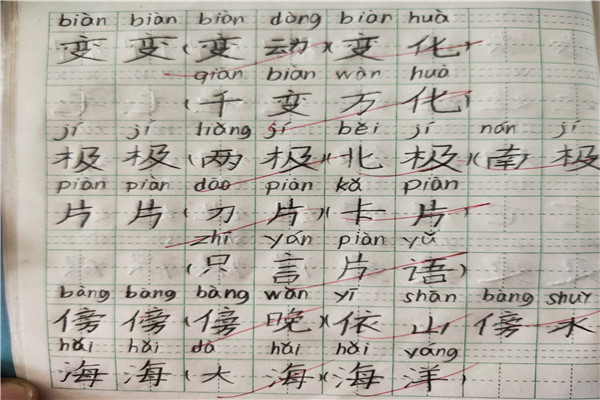 biàn biàn biàn dòng biàn huà
变 变(变 动)(变 化
qiān biàn wàn huà
(千 变 万 化)
jí jí liǎng jí běi jí nán jí
极 极(两 极)(北 极)(南 极
piàn piàn dāo piàn kǎ piàn
片 片(刀 片)(卡 片
zhī yán piàn yǔ
(只 言 片 语)
bàng bàng bàng wǎn yī shān bàng shuǐ
傍 傍(傍 晚)(依 山 傍 水
hǎi hǎi dà hǎi hǎi yáng
海 海(大 海)(海 洋)